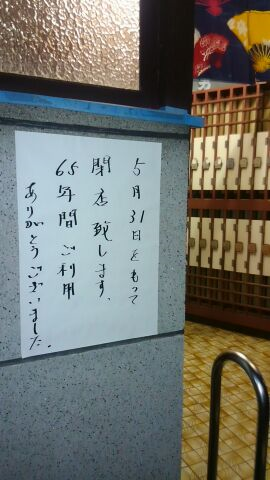 5月31日をもって
閉店致します。
65年間ご利用
ありがとうございました。